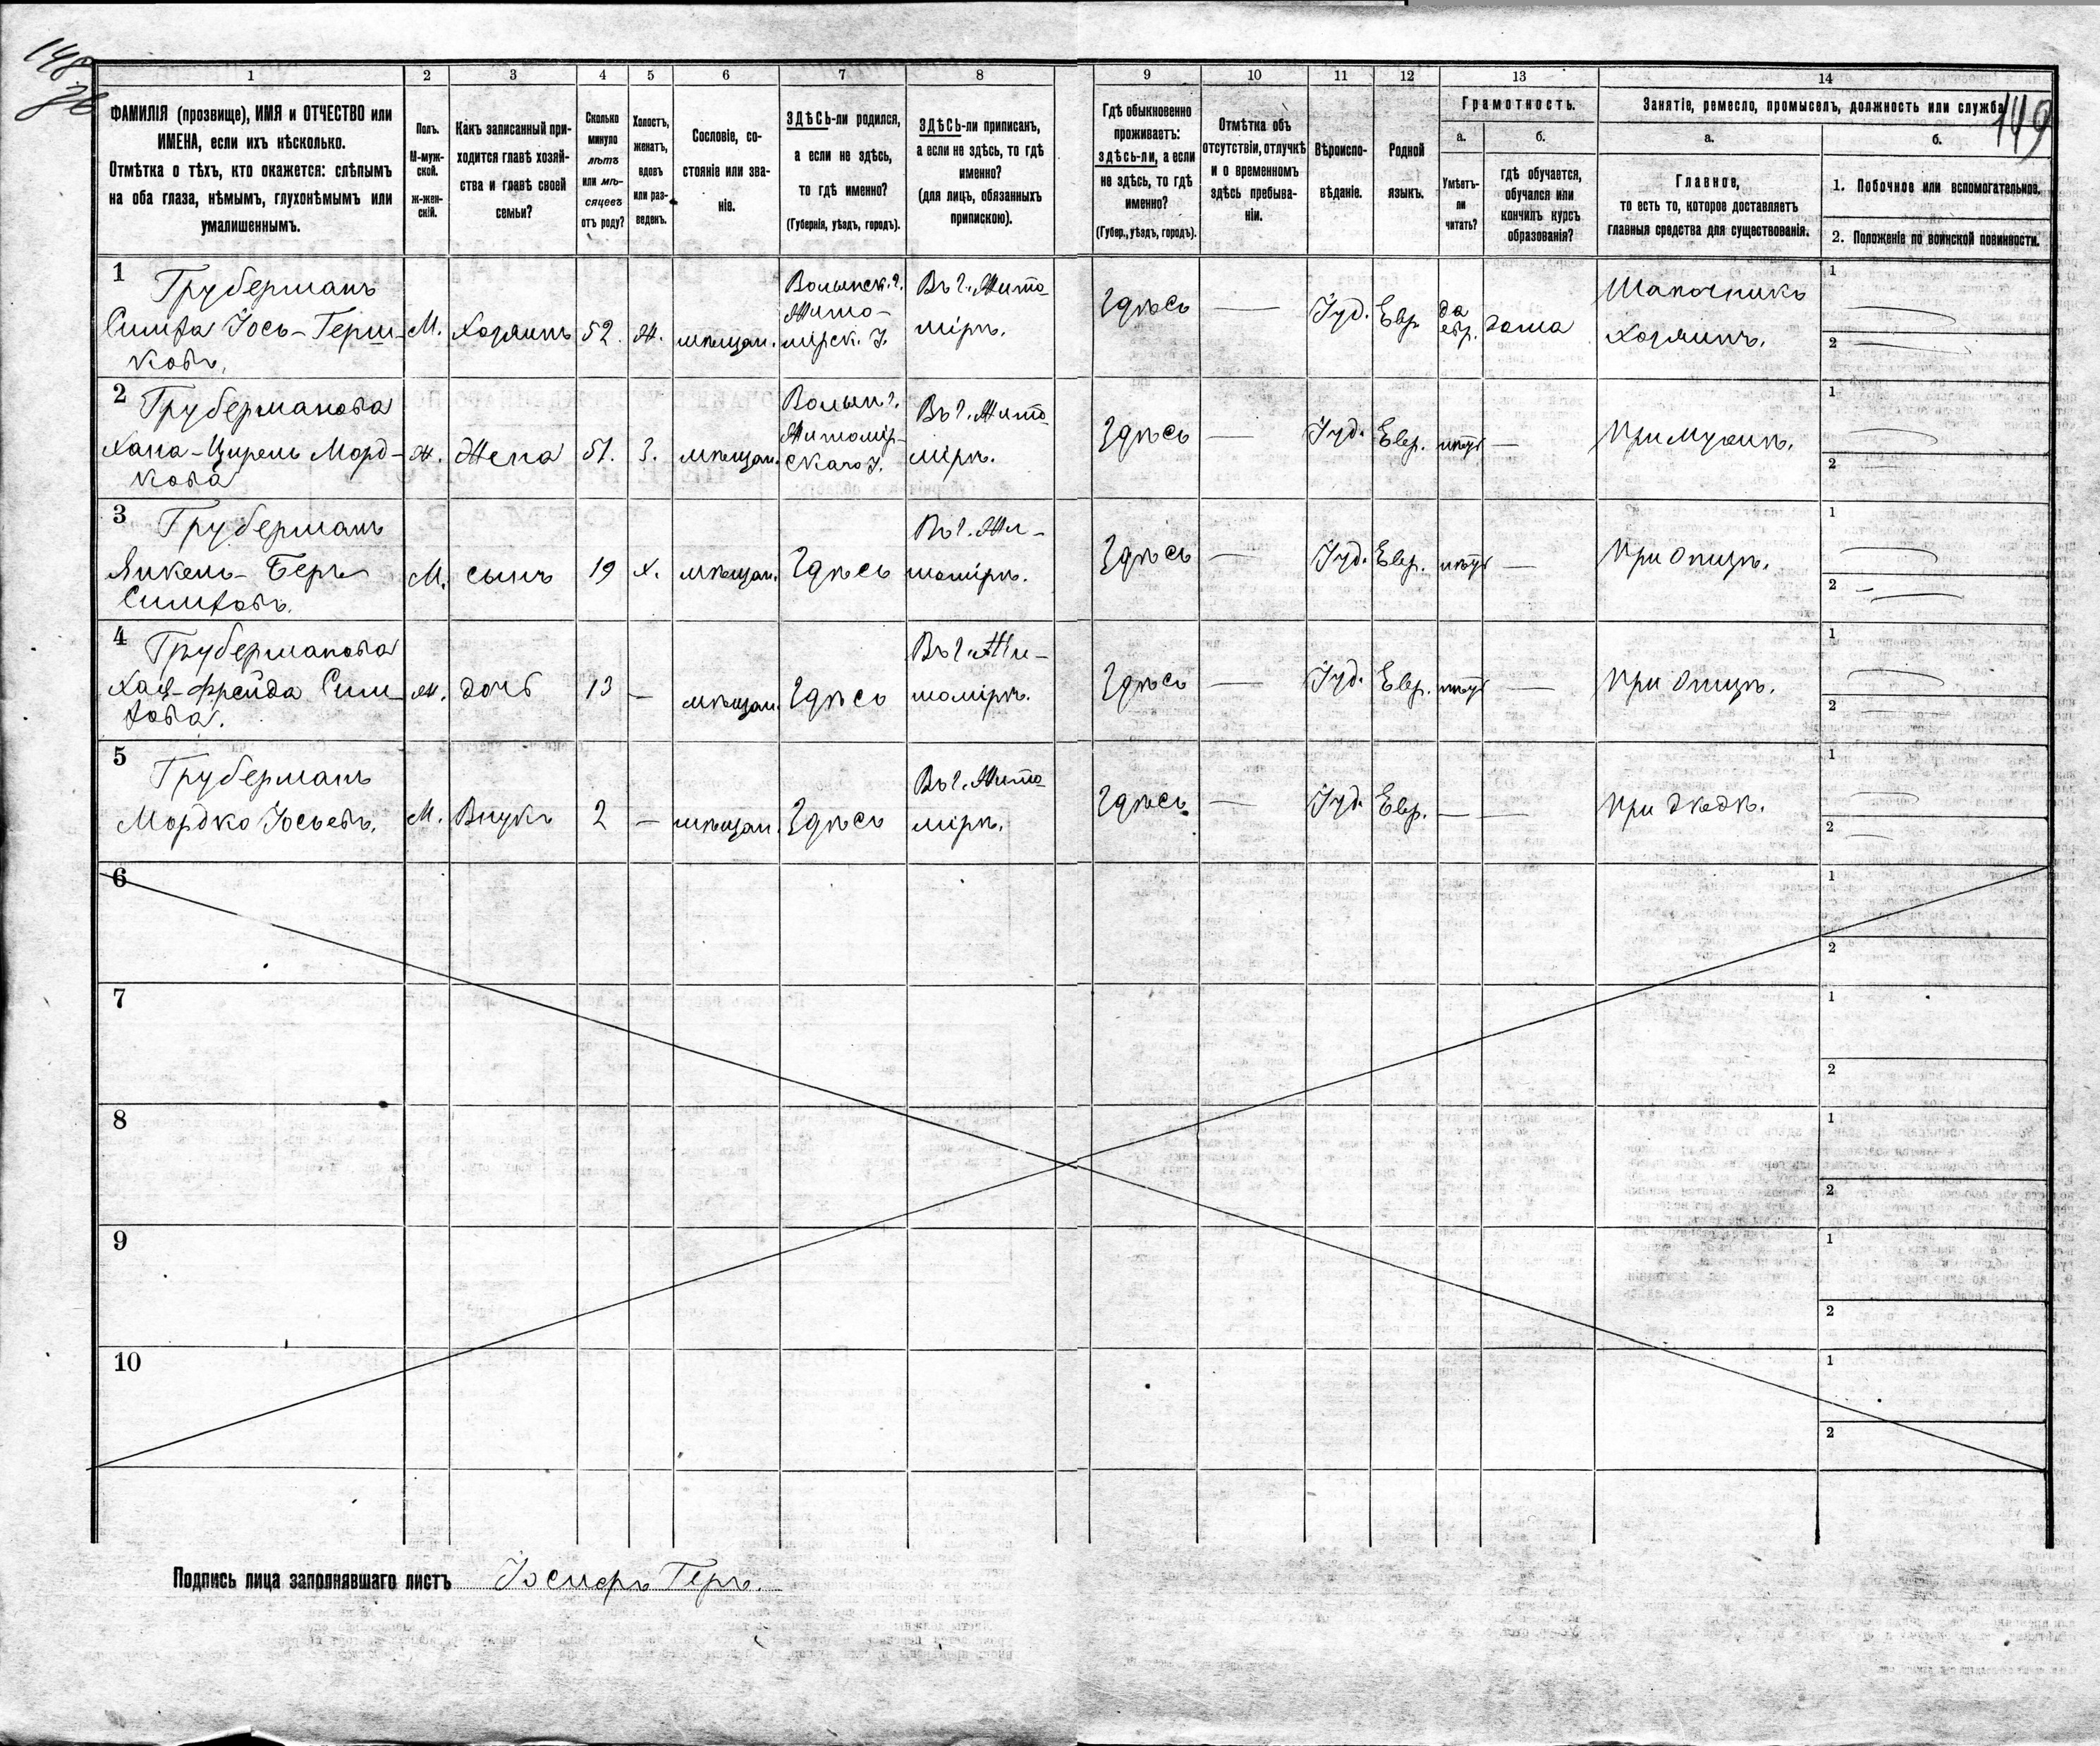 148
об
149
1
2
3
4
5
6
7
8
9
10
11
12
13
14
ФАМИЛІЯ (прозвище), ИМЯ и ОТЧЕСТВО или
ИМЕНА, если ихъ нѣсколько.
Отмѣтка о тѣхъ, кто окажется: слѣпымъ
на оба глаза, нѣмымъ, глухонѣмымъ или
умалишеннымъ.
Полъ.
М-муж-
ской.
ж-жен-
скій.
Какъ записанный при-
ходится главѣ хозяй-
ства и главѣ своей
семьи?
Сколько
минуло
лѣтъ
или мѣ-
сяцевъ
отъ роду?
Холостъ,
женатъ,
вдовъ
или раз-
веденъ.
Сословіе, со-
стояніе или зва-
ніе.
ЗДѢСЬ-ли родился,
а если не здѣсь,
то гдѣ именно?
(Губернія, уѣздъ, городъ).
ЗДѢСЬ-ли приписанъ,
а если не здѣсь, то гдѣ
именно?
(для лицъ, обязанныхъ
припискою).
Гдѣ обыкновенно
проживаетъ:
здѣсь-ли, а если
не здѣсь, то гдѣ
именно?
(Губер., уѣздъ, городъ).
Отмѣтка объ
отсутствіи, отлучкѣ
и о временномъ
здѣсь пребыва-
ніи.
Вѣроиспо-
вѣданіе.
Родной
языкъ.
Грамотность.
а.
б.
Умѣетъ-
ли
читать?
гдѣ обучается,
обучался или
кончилъ курсъ
образованія?
Занятіе, ремесло, промыселъ, должность или служба
а.
б.
Главное,
то есть то, которое доставляетъ
главныя средства для существованія.
1. Побочное или вспомогательное.
2. Положеніе по воинской повинности.
1 Груберманъ
Симха Іось-Герш-
ковъ,
М.
Хозяинъ
52.
Ж.
мѣщан.
Волынск. г.
Жито-
мірск. у.
Въ г. Жито-
мірѣ.
Здѣсь
—
Іуд.
Евр.
да
евр.
дома
Шапочникъ
хозяинъ.
1
2
2 Груберманова
Хана-Цирель Морд-
кова
ж.
Жена
51.
З.
мѣщан.
Волын г.
Житомір-
скаго у.
Въ г. Жито-
мірѣ.
Здѣсь
—
Іуд.
Евр.
нѣтъ
—
При мужѣ.
1
2
3 Груберманъ
Янкель-Беръ
Симховъ.
М.
сынъ
19
х.
мѣщан.
Здѣсь
Въ г. Жи-
томірѣ.
Здѣсь
—
Іуд.
Евр.
нѣтъ
—
При отцѣ.
1
2
4 Груберманова
Фрейда Сим-
хова.
ж.
дочь
13
—
мѣщан.
Здѣсь
Въ г. Жи-
томірѣ.
Здѣсь
—
Іуд.
Евр.
нѣтъ
—
При отцѣ.
1
2
5 Груберманъ
Мордко Іосьевъ.
М.
Внукъ
2
—
мѣщан.
Здѣсь
Въ г. Жито-
мірѣ.
Здѣсь
—
Іуд.
Евр.
—
—
При дѣдѣ.
1
2
6
1
2
7
1
2
8
1
2
9
1
2
10
1
2
Подпись лица заполнявшаго листъ